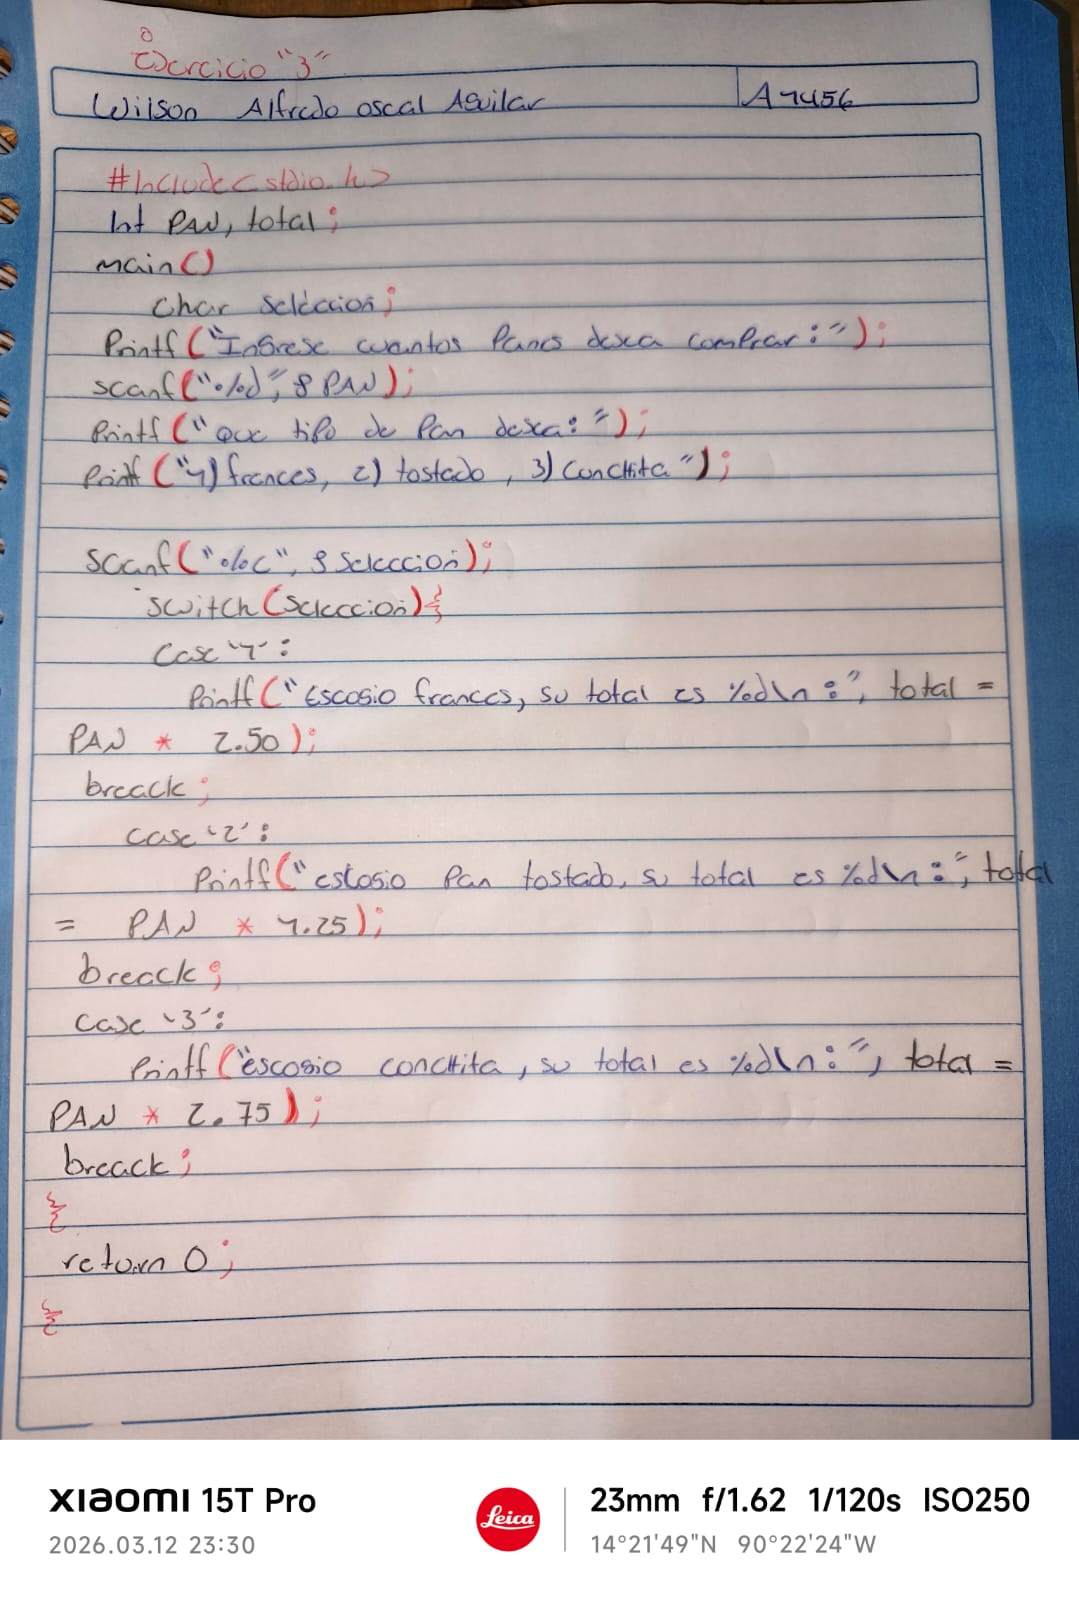 Ejercicio "3"
Wilson Alfredo oscal Aguilar A1456
#Include<stdio.h>
Int PAN, total;
main()
char selección;
Printf("Ingrese cuantos Panes desea comprar:");
scanf("%d", &PAN);
Printf("Que tipo de Pan desea:");
Printf("1) frances, 2) tostado, 3) Conchita");
Scanf("%c", &Seleccion);
switch(Seleccion){
Case '1':
Printf("Escosio frances, su total es %d\n:", total =
PAN * 2.50);
breack;
case '2':
Printf("escosio Pan tostado, su total es %d\n:", total
= PAN * 1.25);
breack;
case '3':
Printf("escosio conchita, su total es %d\n:", total =
PAN * 2.75);
breack;
}
return 0;
}
XIAOMI 15T Pro
2026.03.12 23:30
Leica
23mm f/1.62 1/120s ISO250
14°21'49"N 90°22'24"W